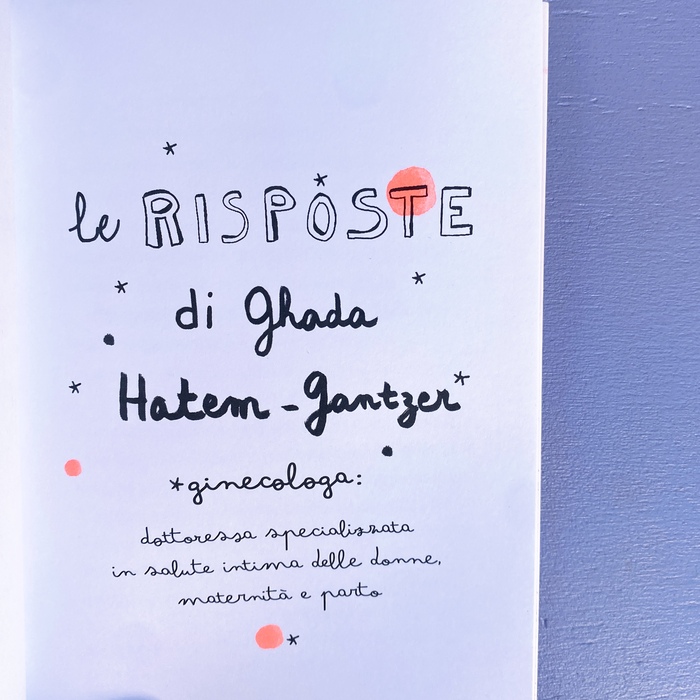 le RISPOSTE
di Ghada
Hatem-Gantzer*
*ginecologa:
dottoressa specializzata
in salute intima delle donne,
maternità e parto
*